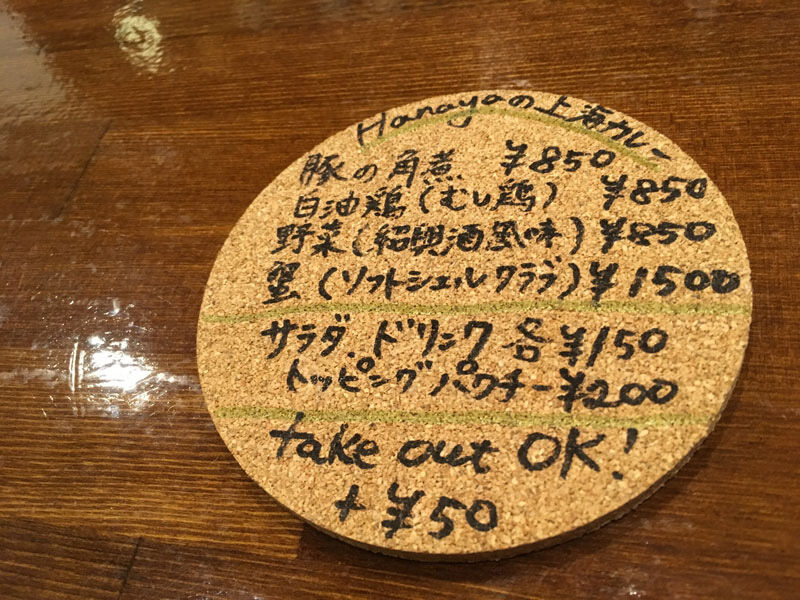 Hanayaの上海カレー
豚の角煮 ¥850
白油鶏(むし鶏) ¥850
野菜(紹興酒風味) ¥850
蟹(ソフトシェルクラブ) ¥1500
サラダ.ドリンク 各¥150
トッピングパクチー¥200
take out OK!
+¥50